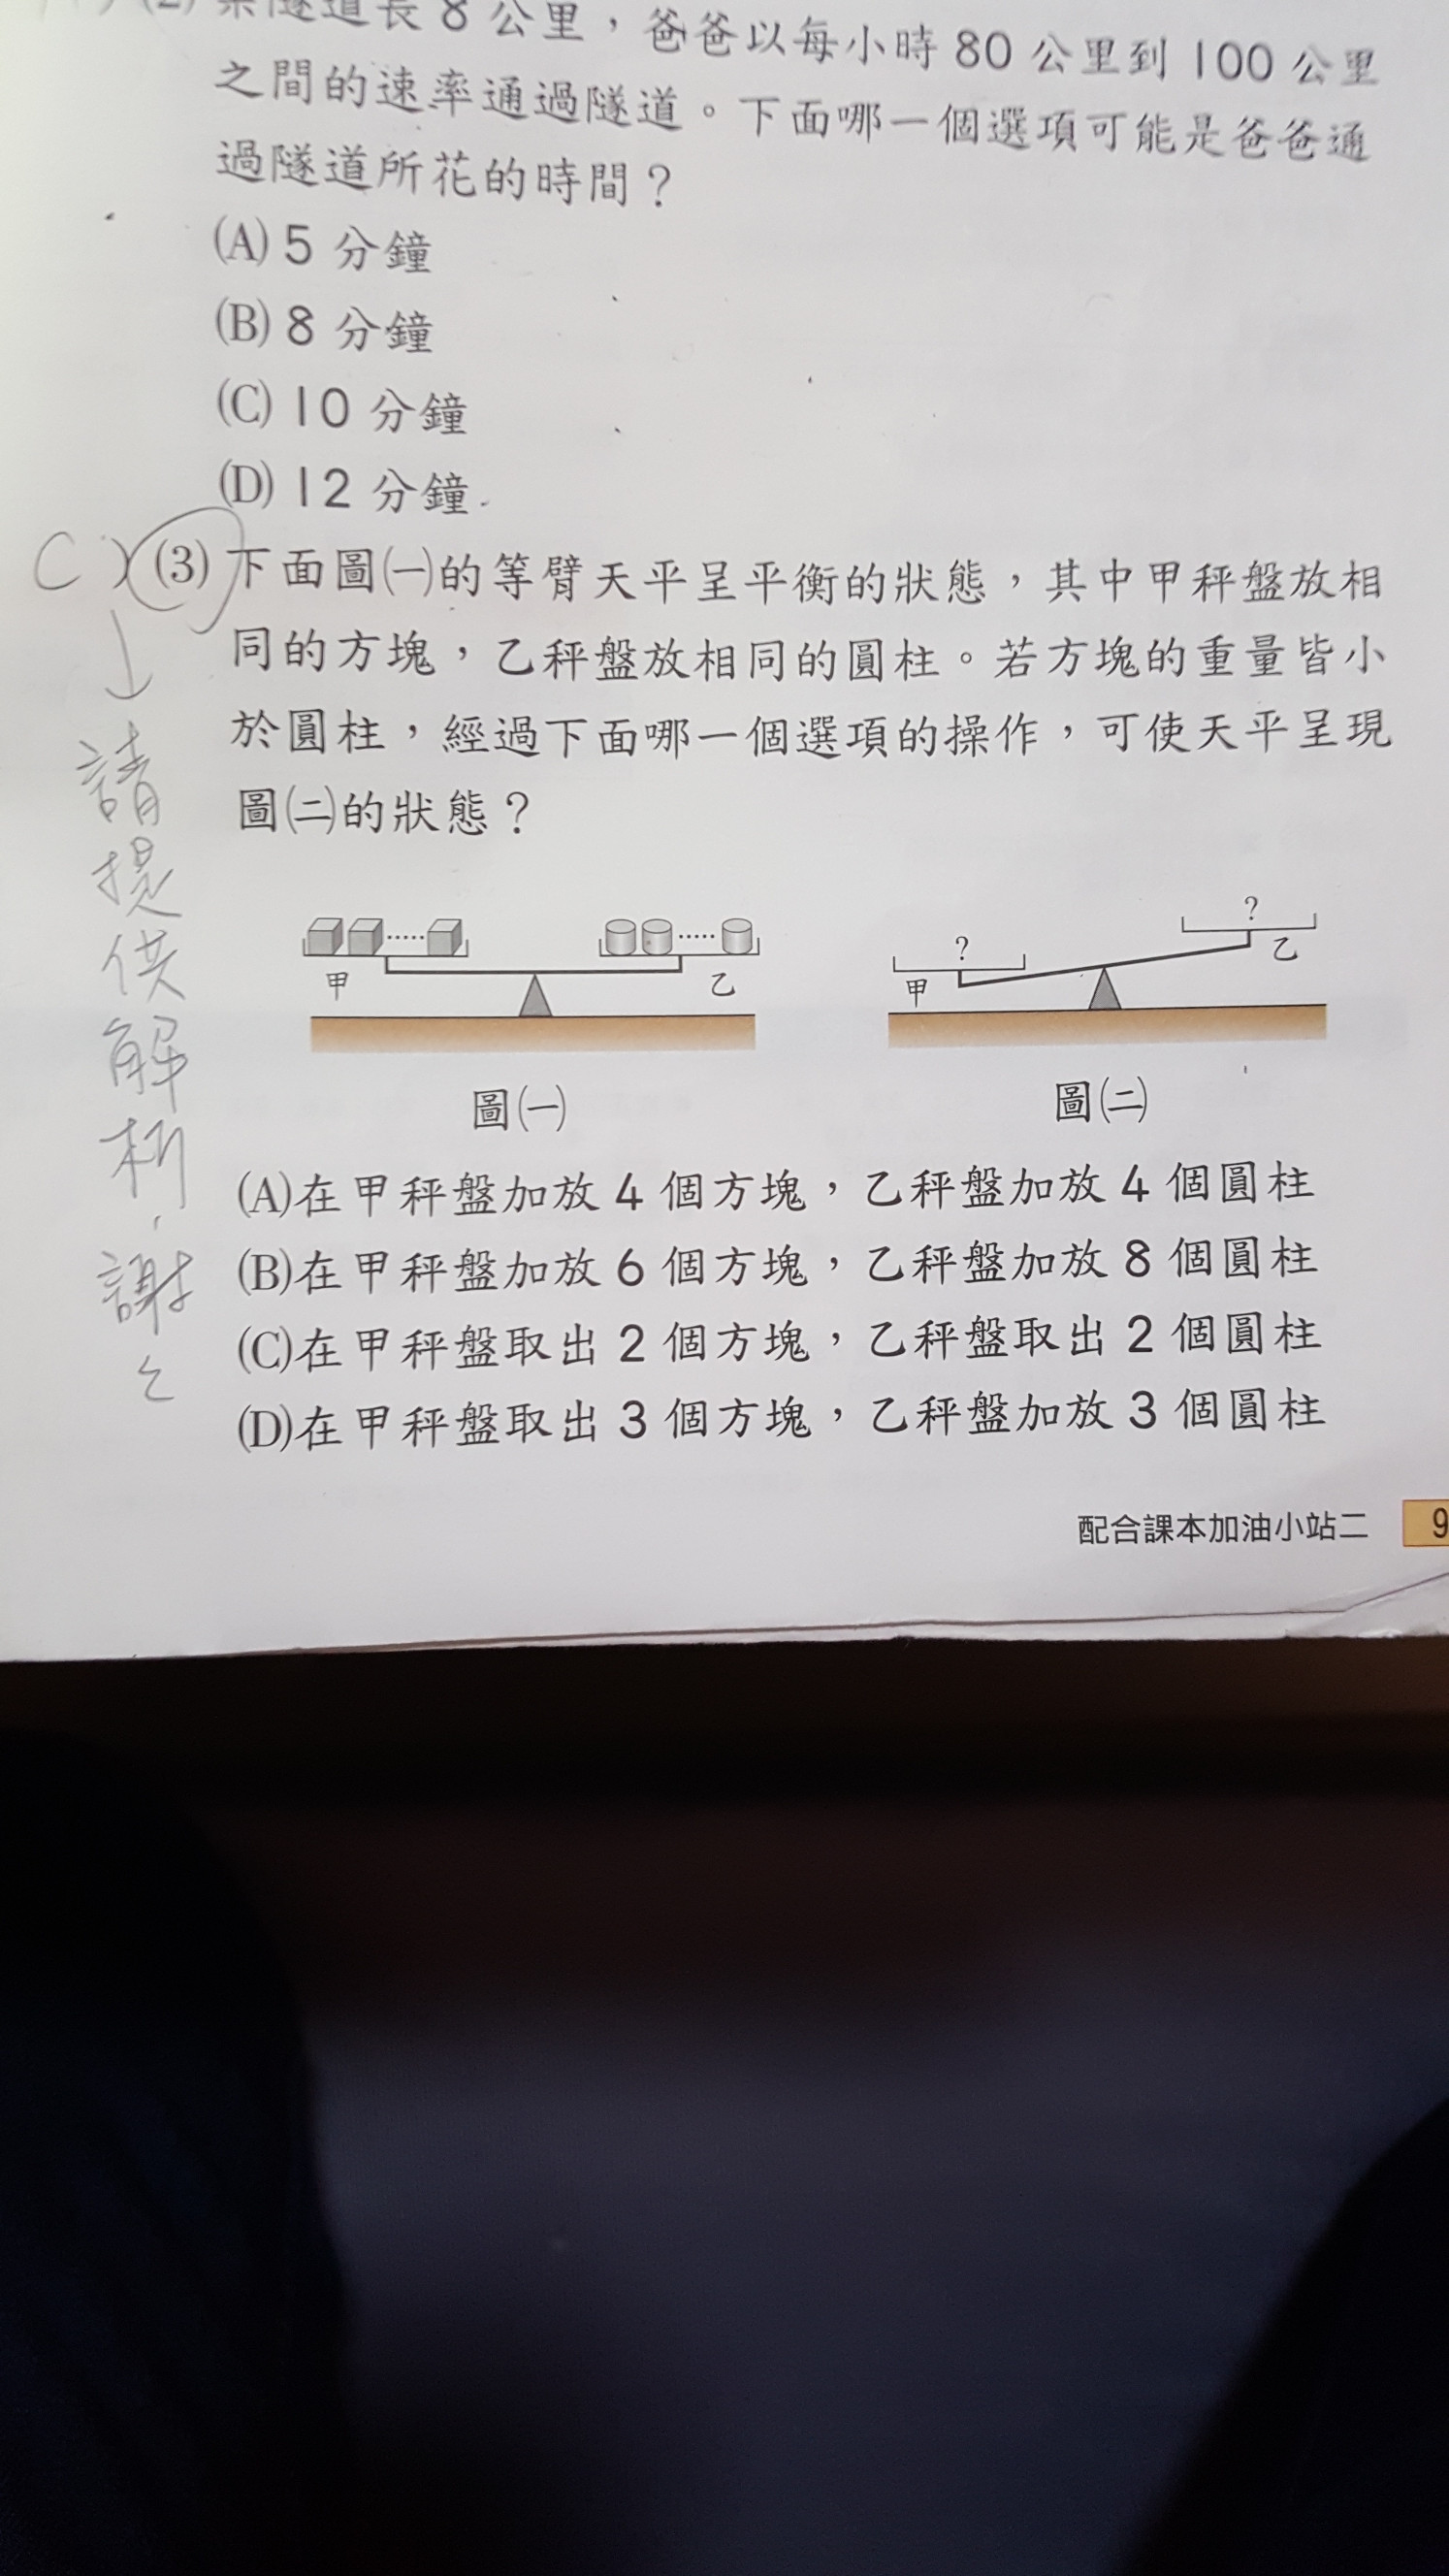 (2) 某隧道長 8 公里，爸爸以每小時 80 公里到 100 公里
之間的速率通過隧道。下面哪一個選項可能是爸爸通
過隧道所花的時間？
(A) 5 分鐘
(B) 8 分鐘
(C) 10 分鐘
(D) 12 分鐘
C ) (3) 下面圖㈠的等臂天平呈平衡的狀態，其中甲秤盤放相
同的方塊，乙秤盤放相同的圓柱。若方塊的重量皆小
於圓柱，經過下面哪一個選項的操作，可使天平呈現
圖㈡的狀態？
↓請提供解析，謝々
甲 乙
圖㈠
? ?
甲 乙
圖㈡
(A)在甲秤盤加放 4 個方塊，乙秤盤加放 4 個圓柱
(B)在甲秤盤加放 6 個方塊，乙秤盤加放 8 個圓柱
(C)在甲秤盤取出 2 個方塊，乙秤盤取出 2 個圓柱
(D)在甲秤盤取出 3 個方塊，乙秤盤加放 3 個圓柱
配合課本加油小站二 9